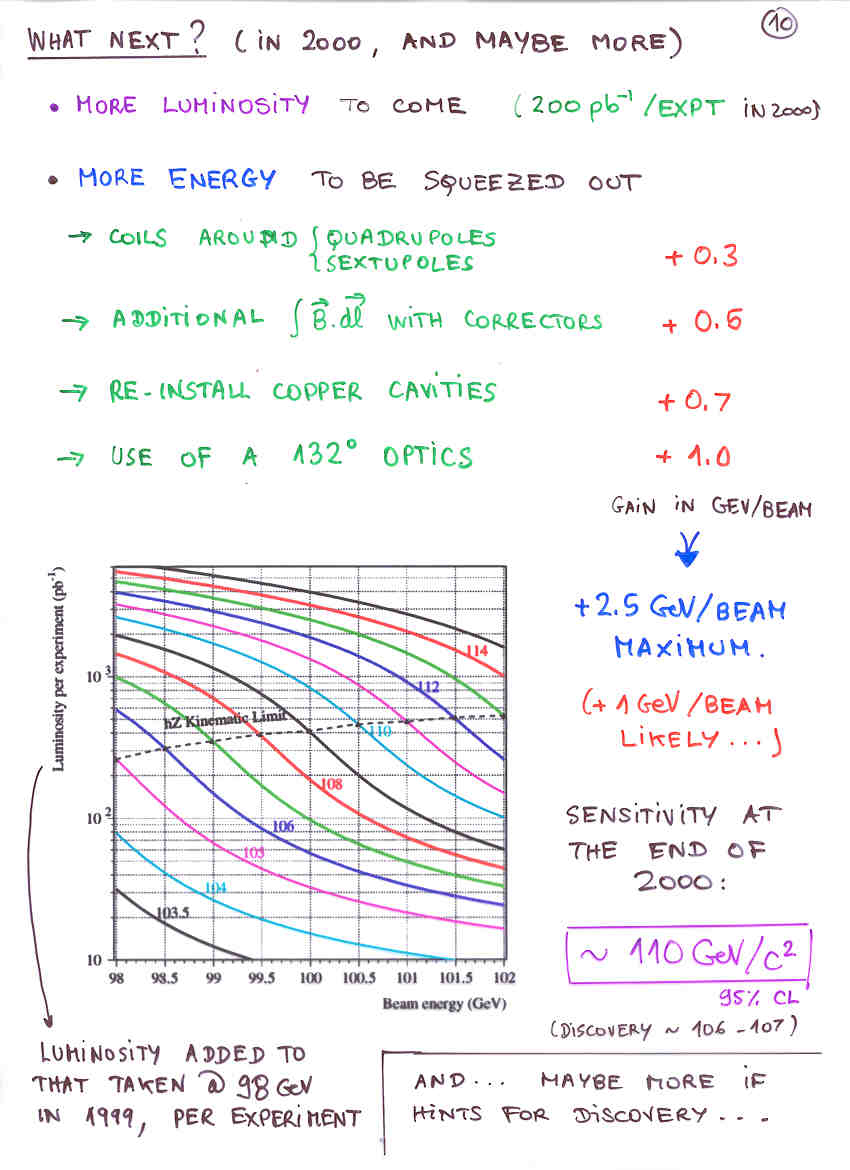 10
WHAT NEXT? (IN 2000, AND MAYBE MORE)
• MORE LUMINOSITY TO COME (200 pb⁻¹/EXPT IN 2000)
• MORE ENERGY TO BE SQUEEZED OUT
→ COILS AROUND { QUADRUPOLES
SEXTUPOLES + 0.3
→ ADDITIONAL ∫ B⃗.dl⃗ WITH CORRECTORS + 0.5
→ RE-INSTALL COPPER CAVITIES + 0.7
→ USE OF A 132° OPTICS + 1.0
GAIN IN GEV/BEAM
+2.5 GeV/BEAM
MAXIMUM.
(+ 1 GeV/BEAM
LIKELY...)
SENSITIVITY AT
THE END OF
2000:
~ 110 GeV/c²
95% CL
(DISCOVERY ~ 106-107)
Luminosity per experiment (pb⁻¹)
10³
10²
10
114
112
hZ Kinematic Limit
110
108
106
105
104
103.5
98 98.5 99 99.5 100 100.5 101 101.5 102
Beam energy (GeV)
LUMINOSITY ADDED TO
THAT TAKEN @ 98 GeV
IN 1999, PER EXPERIMENT
AND... MAYBE MORE IF
HINTS FOR DISCOVERY....